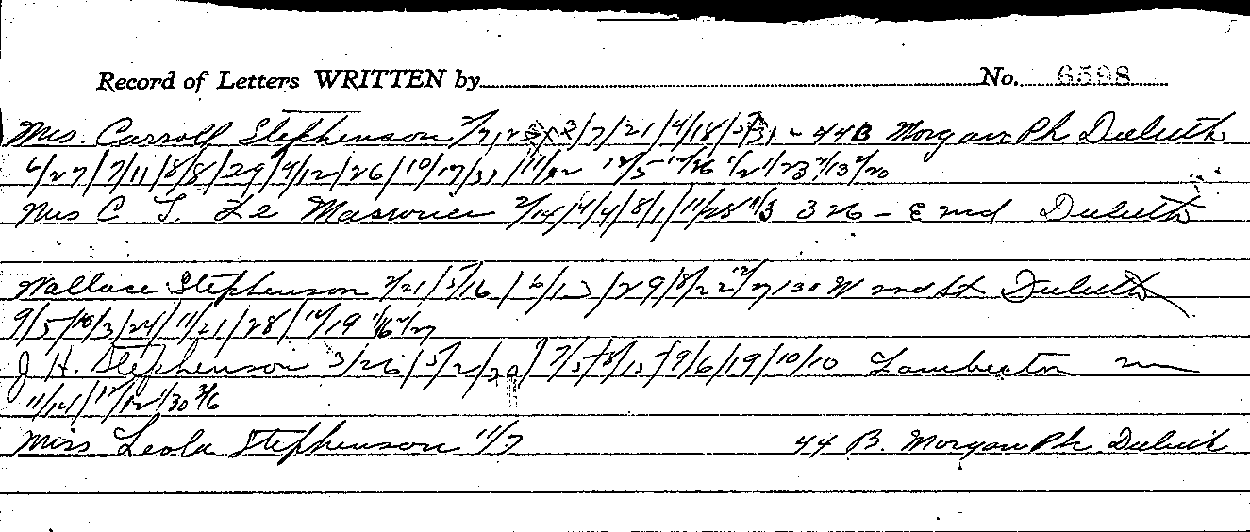 Record of Letters WRITTEN by No. 6598
Mrs. Carroll Stephenson 3/7/21/4/18/ 44B Morgan Pk Duluth
6/27/7/11/8/8/29/9/12/26/10/17/ 12/5 12/26 2/13
Mrs C 2/14/4/4/8/1/11/28 326 - E 2nd Duluth
Wallace Stephenson 2/21/5/16/6/13/29/8/22 130 W 2nd St Duluth
9/5/10/3/24/11/21/28/12/19 1/16 2/27
J. H. Stephenson 3/26/5/2/ 7/5/8/15/9/6/19/10/10 Lamberton
11/14/12/12 1/30 3/6
Miss Leola Stephenson 11/7 44 B. Morgan Pk. Duluth